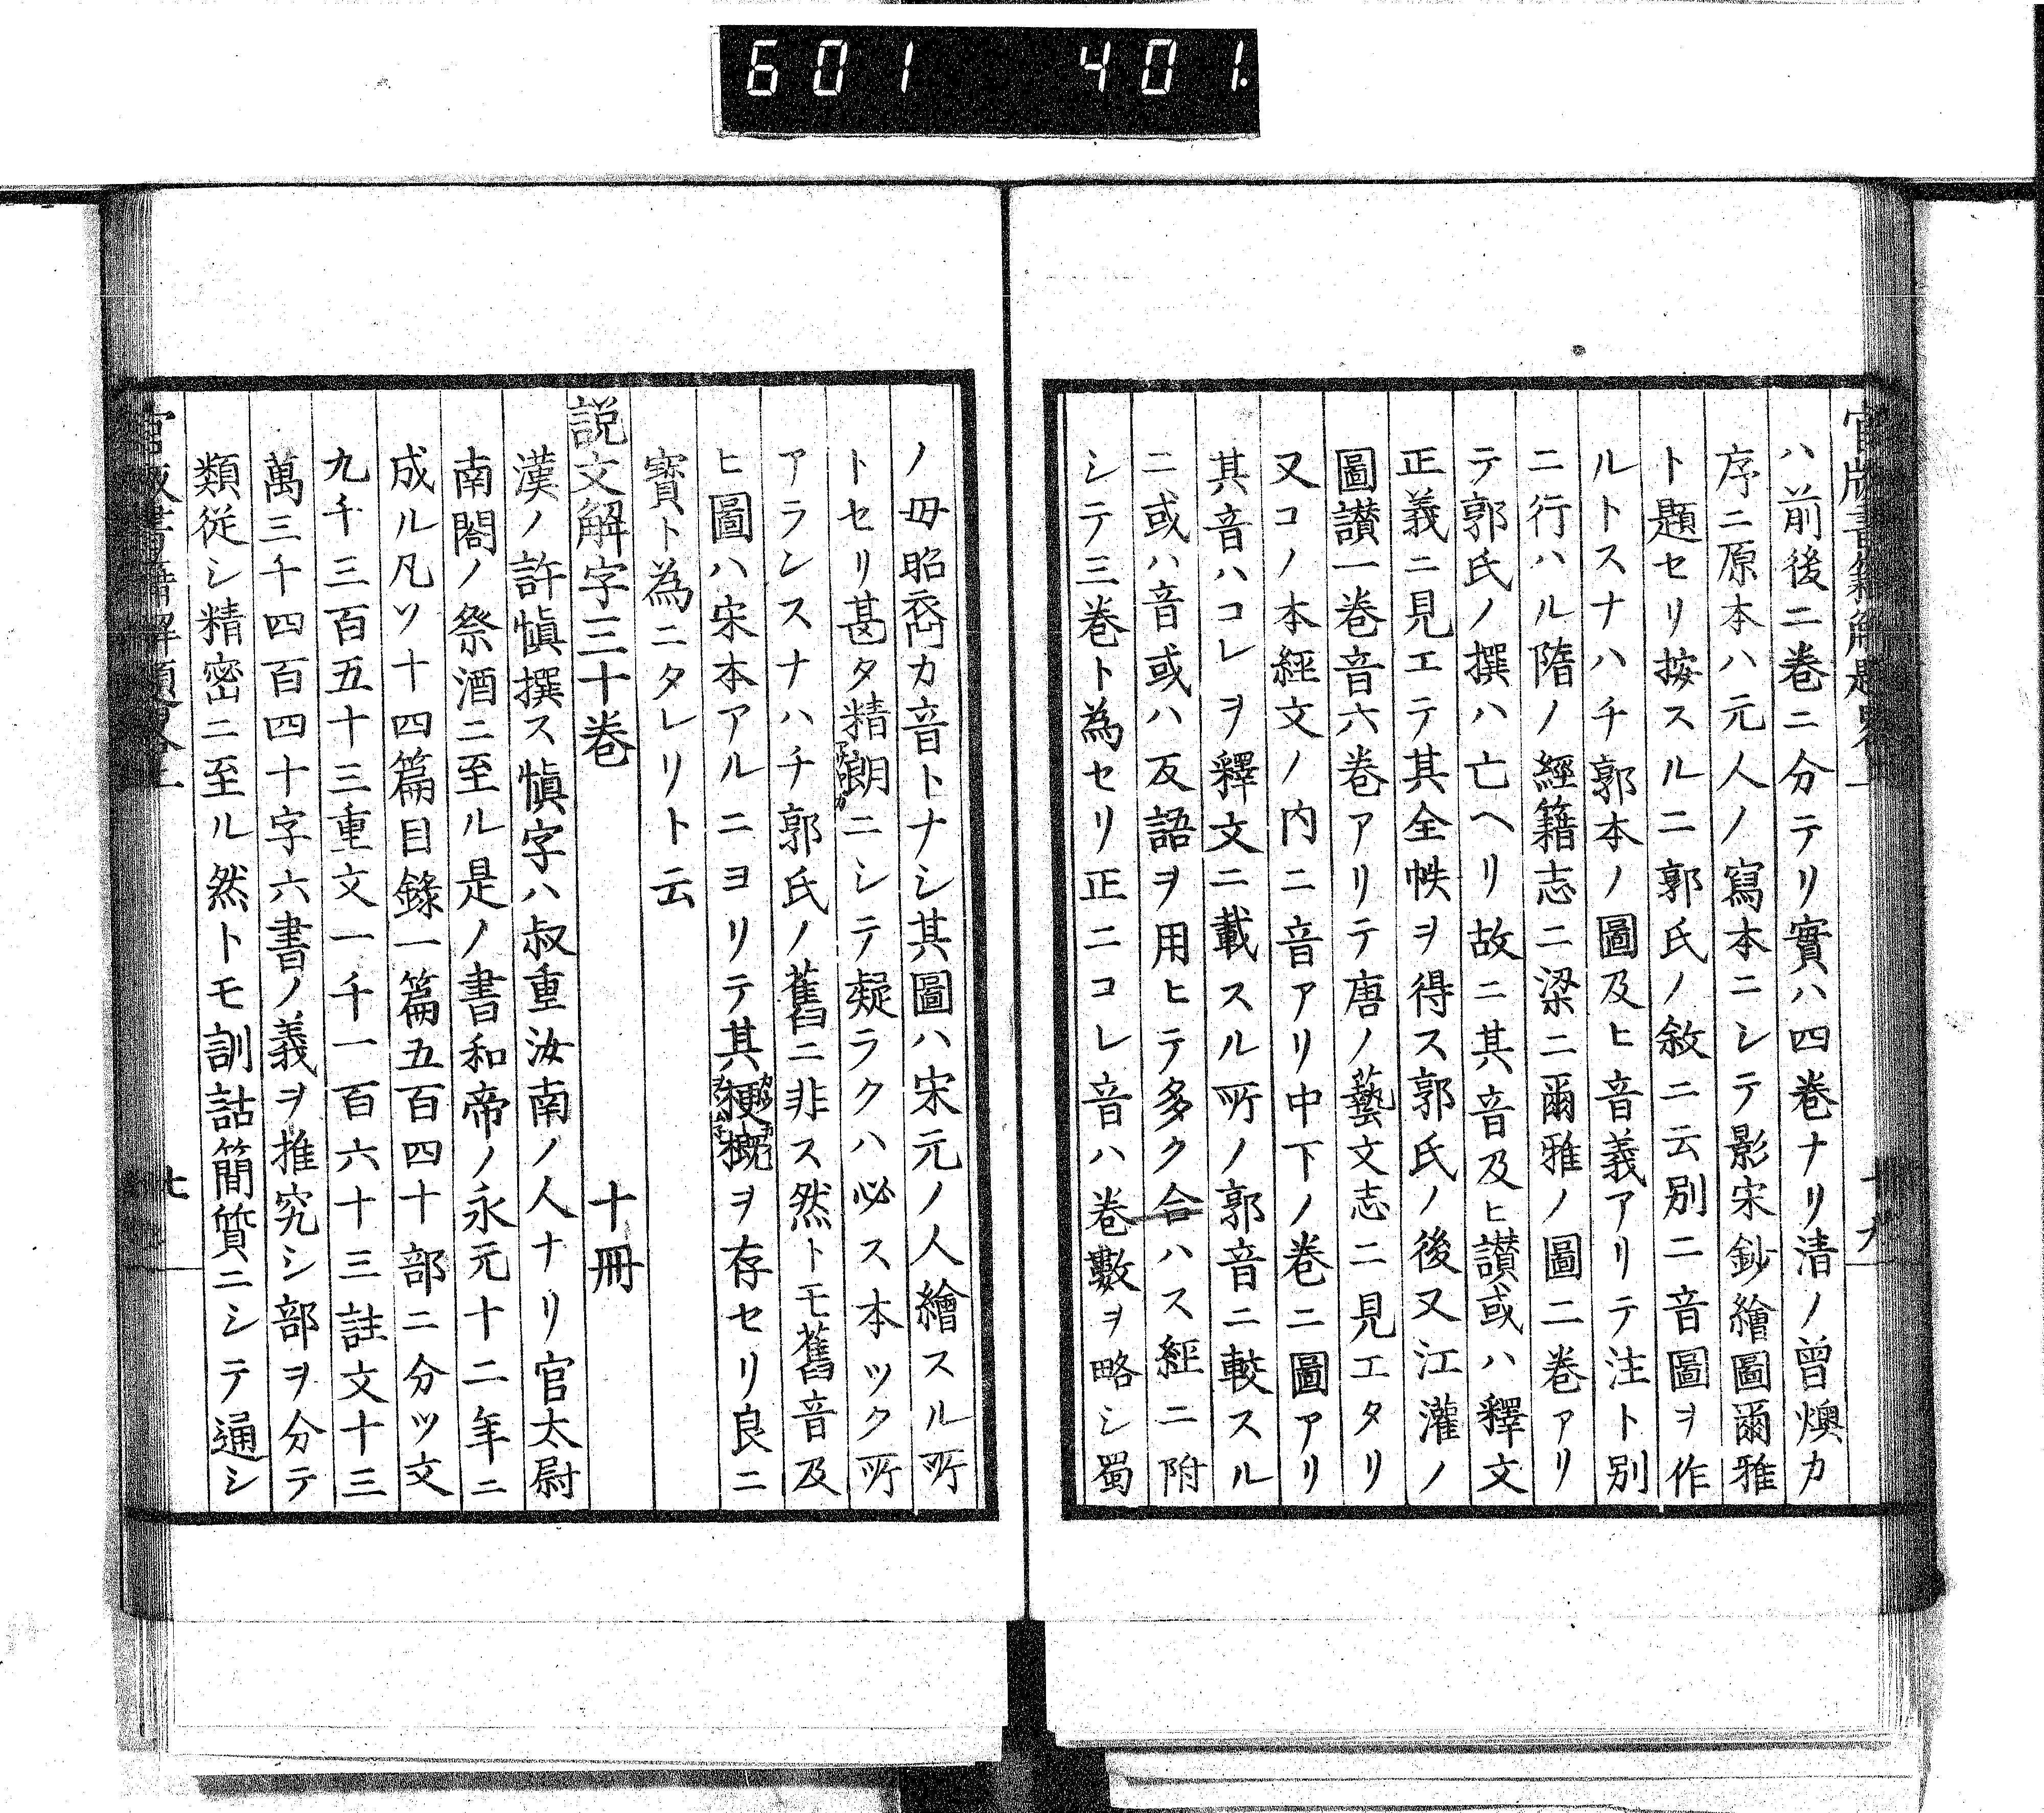 601 401.
ハ前後二巻ニ分テリ實ハ四巻ナリ清ノ曾燠カ
序ニ原本ハ元人ノ寫本ニシテ影宋鈔繪圖爾雅
ト題セリ按スルニ郭氏ノ敘ニ云別ニ音圖ヲ作
ルトスナハチ郭本ノ圖及ヒ音義アリテ注ト別
ニ行ハル隋ノ經籍志ニ梁ニ爾雅ノ圖二巻アリ
テ郭氏ノ撰ハ亡ヘリ故ニ其音及ヒ讃或ハ釋文
正義ニ見エテ其全帙ヲ得ス郭氏ノ後又江灌ノ
圖讃一巻音六巻アリテ唐ノ藝文志ニ見エタリ
又コノ本經文ノ内ニ音アリ中下ノ巻ニ圖アリ
其音ハコレヲ釋文ニ載スル所ノ郭音ニ較スル
ニ或ハ音或ハ反語ヲ用ヒテ多ク合ハス經ニ附
シテ三巻ト為セリ正ニコレ音ハ巻數ヲ略シ蜀
ノ毋昭裔カ音トナシ其圖ハ宋元ノ人繪スル所
トセリ甚タ精朗ニシテ疑ラクハ必ス本ツク所
アランスナハチ郭氏ノ舊ニ非ス然トモ舊音及
ヒ圖ハ宋本アルニヨリテ其梗概ヲ存セリ良ニ
寳ト為ニタレリト云
説文解字三十巻 十冊
漢ノ許愼撰ス愼字ハ叔重汝南ノ人ナリ官太尉
南閤ノ祭酒ニ至ル是ノ書和帝ノ永元十二年ニ
成ル凡ソ十四篇目錄一篇五百四十部ニ分ツ文
九千三百五十三重文一千一百六十三註文十三
萬三千四百四十字六書ノ義ヲ推究シ部ヲ分テ
類從シ精密ニ至ル然トモ訓詁簡質ニシテ通シ